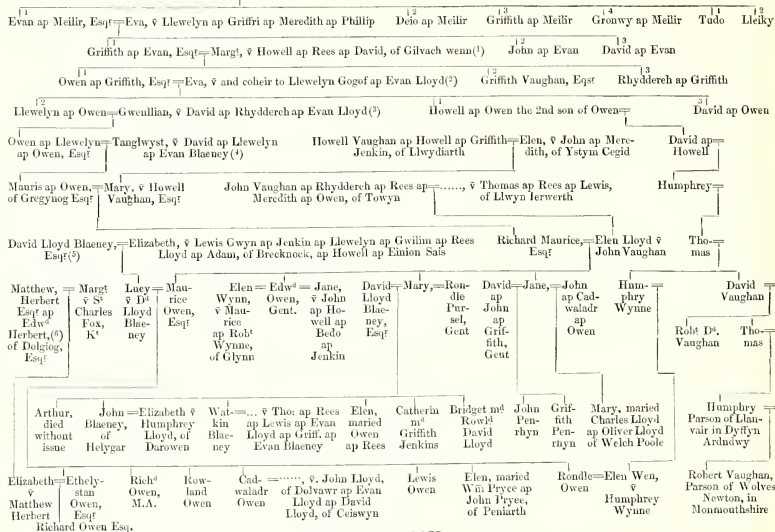 1
Evan ap Meilir, Esqr=Eva, ṽ Llewelyn ap Griffri ap Meredith ap Phillip
2
Deio ap Meilir
3
Griffith ap Meilir
4
Gronwy ap Meilir
1
Tudo
2
Lleiky
1
Griffith ap Evan, Esqr=Margt, ṽ Howell ap Rees ap David, of Gilvach wenn(1)
2
John ap Evan
3
David ap Evan
1
Owen ap Griffith, Esqr=Eva, ṽ and coheir to Llewelyn Gogof ap Evan Lloyd(2)
2
Griffith Vaughan, Eqsr
3
Rhydderch ap Griffith
2
Llewelyn ap Owen=Gwenllian, ṽ David ap Rhydderch ap Evan Lloyd(3)
1
Howell ap Owen the 2nd son of Owen=
3
David ap Owen
Owen ap Llewelyn=Tanglwyst, ṽ David ap Llewelyn
ap Owen, Esqr
ap Evan Blaeney(4)
Howell Vaughan ap Howell ap Griffith=Elen, ṽ John ap Mere-
Jenkin, of Llwydiarth
dith, of Ystym Cegid
David ap=
Howell
Mauris ap Owen,=Mary, ṽ Howell
of Gregynog Esqr
Vaughan, Esqr
John Vaughan ap Rhydderch ap Rees ap=......, ṽ Thomas ap Rees ap Lewis,
Meredith ap Owen, of Towyn
of Llwyn Ierwerth
Humphrey=
David Lloyd Blaeney,=Elizabeth, ṽ Lewis Gwyn ap Jenkin ap Llewelyn ap Gwilim ap Rees
Esqr(5)
Lloyd ap Adam, of Brecknock, ap Howell ap Einion Sais
Richard Maurice,=Elen Lloyd ṽ
Esqr
John Vaughan
Tho-=
mas
Matthew,
Herbert
Esqr ap
Edwd
Herbert,(6)
of Dolgiog,
Esqr
=
Margt
ṽ Sr
Charles
Fox,
Kt
Lucy=
ṽ Dd
Lloyd
Blae-
ney
Mau-
rice
Owen,
Esqr
Elen =
Wynn,
ṽ Mau-
rice
ap Robt
Wynne,
of Glynn
Edwd =
Owen,
Gent.
Jane,
ṽ John
ap Ho-
well ap
Bedo
ap
Jenkin
David=
Lloyd
Blae-
ney,
Esqr
Mary,=
Ron-
dle
Pur-
sel,
Gent
David=
ap
John
ap
Grif-
fith,
Gent
Jane,=
John
ap Cad-
waladr
ap
Owen
Hum-=
phry
Wynne
David
Vaughan
Robt Dd.
Vaughan
Tho-=
mas
Arthur,
died
without
issue
John =
Blaeney,
of
Helygar
Elizabeth ṽ
Humphrey
Lloyd, of
Darowen
Wat-=
kin
Blae-
ney
... ṽ Tho: ap Rees
ap Lewis ap Evan
Lloyd ap Griff. ap
Evan Blaeney
Elen,
maried
Owen
ap Rees
Catherin
md
Griffith
Jenkins
Bridget md
Rowld
David
Lloyd
John
Pen-
rhyn
Grif-
fith
Penrhyn
Mary, maried
Charles Lloyd
ap Oliver Lloyd
of Welch Poole
Humphery
Parson of Llan-
vair in Dyffyn
Ardndwy
Elizabeth=
ṽ
Matthew
Herbert
Ethely-
stan
Owen,
Esqr
Richd
Owen,
M.A.
Row-
land
Owen
Cad- =
waladr
Owen
......, ṽ. John Lloyd,
of Dolvawr ap Evan
Lloyd ap David
Lloyd, of Ceiswyn
Lewis
Owen
Elen, maried
Wm Pryce ap
John Pryce,
of Peniarth
Rondle=
Owen
Elen Wen,
ṽ
Humphrey
Wynne
Robert Vaughan,
Parson of Wolves
Newton, in
Monmouthshire
Richard Owen Esq.